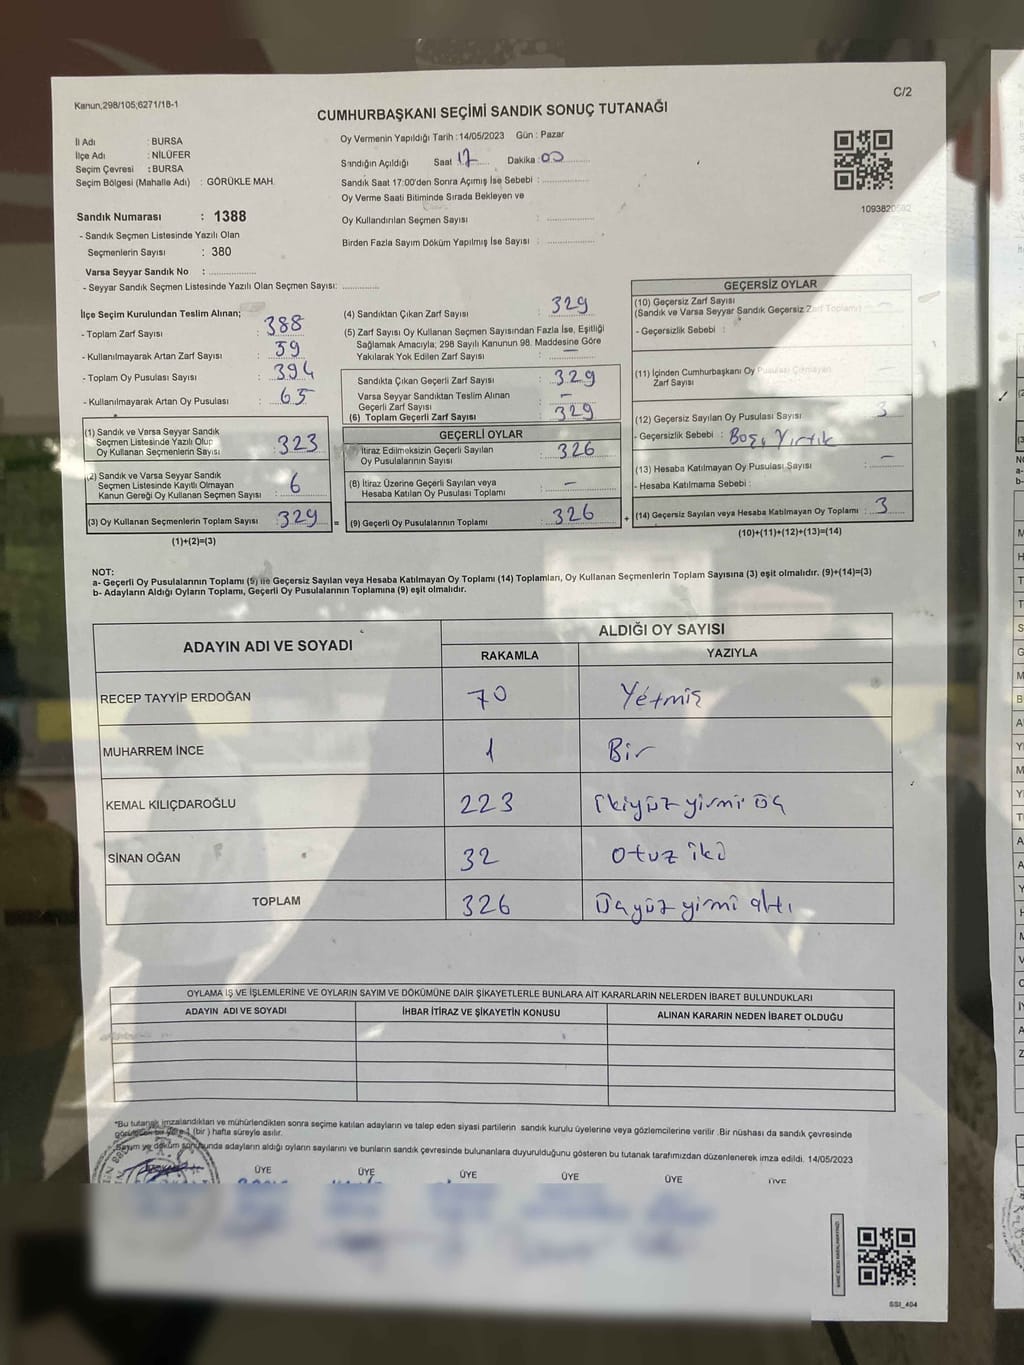 Kanun;298/105;6271/18-1
C/2
CUMHURBAŞKANI SEÇİMİ SANDIK SONUÇ TUTANAĞI
İl Adı : BURSA
İlçe Adı : NİLÜFER
Seçim Çevresi : BURSA
Seçim Bölgesi (Mahalle Adı) : GÖRÜKLE MAH.
Sandık Numarası : 1388
- Sandık Seçmen Listesinde Yazılı Olan
Seçmenlerin Sayısı : 380
Varsa Seyyar Sandık No :
- Seyyar Sandık Seçmen Listesinde Yazılı Olan Seçmen Sayısı:
Oy Vermenin Yapıldığı Tarih : 14/05/2023 Gün : Pazar
Sandığın Açıldığı Saat 17 Dakika 00
Sandık Saat 17:00'den Sonra Açımış İse Sebebi :
Oy Verme Saati Bitiminde Sırada Bekleyen ve
Oy Kullandırılan Seçmen Sayısı :
Birden Fazla Sayım Döküm Yapılmış İse Sayısı :
İlçe Seçim Kurulundan Teslim Alınan;
- Toplam Zarf Sayısı : 388
- Kullanılmayarak Artan Zarf Sayısı : 59
- Toplam Oy Pusulası Sayısı : 394
- Kullanılmayarak Artan Oy Pusulası : 65
(1) Sandık ve Varsa Seyyar Sandık
Seçmen Listesinde Yazılı Olup
Oy Kullanan Seçmenlerin Sayısı : 323
(2) Sandık ve Varsa Seyyar Sandık
Seçmen Listesinde Kayıtlı Olmayan
Kanun Gereği Oy Kullanan Seçmen Sayısı : 6
(3) Oy Kullanan Seçmenlerin Toplam Sayısı : 329 =
(1)+(2)=(3)
(4) Sandıktan Çıkan Zarf Sayısı : 329
(5) Zarf Sayısı Oy Kullanan Seçmen Sayısından Fazla İse, Eşitliği
Sağlamak Amacıyla; 298 Sayılı Kanunun 98. Maddesine Göre
Yakılarak Yok Edilen Zarf Sayısı : —
Sandıkta Çıkan Geçerli Zarf Sayısı : 329
Varsa Seyyar Sandıktan Teslim Alınan
Geçerli Zarf Sayısı : —
(6) Toplam Geçerli Zarf Sayısı : 329
GEÇERLİ OYLAR
İtiraz Edilmeksizin Geçerli Sayılan
Oy Pusulalarının Sayısı : 326
(8) İtiraz Üzerine Geçerli Sayılan veya
Hesaba Katılan Oy Pusulası Toplamı : —
(9) Geçerli Oy Pusulalarının Toplamı : 326 +
GEÇERSİZ OYLAR
(10) Geçersiz Zarf Sayısı
(Sandık ve Varsa Seyyar Sandık Geçersiz Zarf Toplamı)
- Geçersizlik Sebebi :
(11) İçinden Cumhurbaşkanı Oy Pusulası Çıkmayan
Zarf Sayısı
(12) Geçersiz Sayılan Oy Pusulası Sayısı : 3
- Geçersizlik Sebebi : Boş, Yırtık
(13) Hesaba Katılmayan Oy Pusulası Sayısı : —
- Hesaba Katılmama Sebebi :
(14) Geçersiz Sayılan veya Hesaba Katılmayan Oy Toplamı : 3
(10)+(11)+(12)+(13)=(14)
NOT:
a- Geçerli Oy Pusulalarının Toplamı (9) ile Geçersiz Sayılan veya Hesaba Katılmayan Oy Toplamı (14) Toplamları, Oy Kullanan Seçmenlerin Toplam Sayısına (3) eşit olmalıdır. (9)+(14)=(3)
b- Adayların Aldığı Oyların Toplamı, Geçerli Oy Pusulalarının Toplamına (9) eşit olmalıdır.
ADAYIN ADI VE SOYADI
ALDIĞI OY SAYISI
RAKAMLA YAZIYLA
RECEP TAYYİP ERDOĞAN 70 Yetmiş
MUHARREM İNCE 1 Bir
KEMAL KILIÇDAROĞLU 223 ikiyüz yirmi üç
SİNAN OĞAN 32 otuz iki
TOPLAM 326 Üçyüz yirmi altı
OYLAMA İŞ VE İŞLEMLERİNE VE OYLARIN SAYIM VE DÖKÜMÜNE DAİR ŞİKAYETLERLE BUNLARA AİT KARARLARIN NELERDEN İBARET BULUNDUKLARI
ADAYIN ADI VE SOYADI İHBAR İTİRAZ VE ŞİKAYETİN KONUSU ALINAN KARARIN NEDEN İBARET OLDUĞU
*Bu tutanak imzalandıktan ve mühürlendikten sonra seçime katılan adayların ve talep eden siyasi partilerin sandık kurulu üyelerine veya gözlemcilerine verilir .Bir nüshası da sandık çevresinde
1 (bir ) hafta süreyle asılır.
Sayım ve döküm sonucunda adayların aldığı oyların sayılarını ve bunların sandık çevresinde bulunanlara duyurulduğunu gösteren bu tutanak tarafımızdan düzenlenerek imza edildi. 14/05/2023
ÜYE ÜYE ÜYE ÜYE ÜYE ÜYE
SSI_404